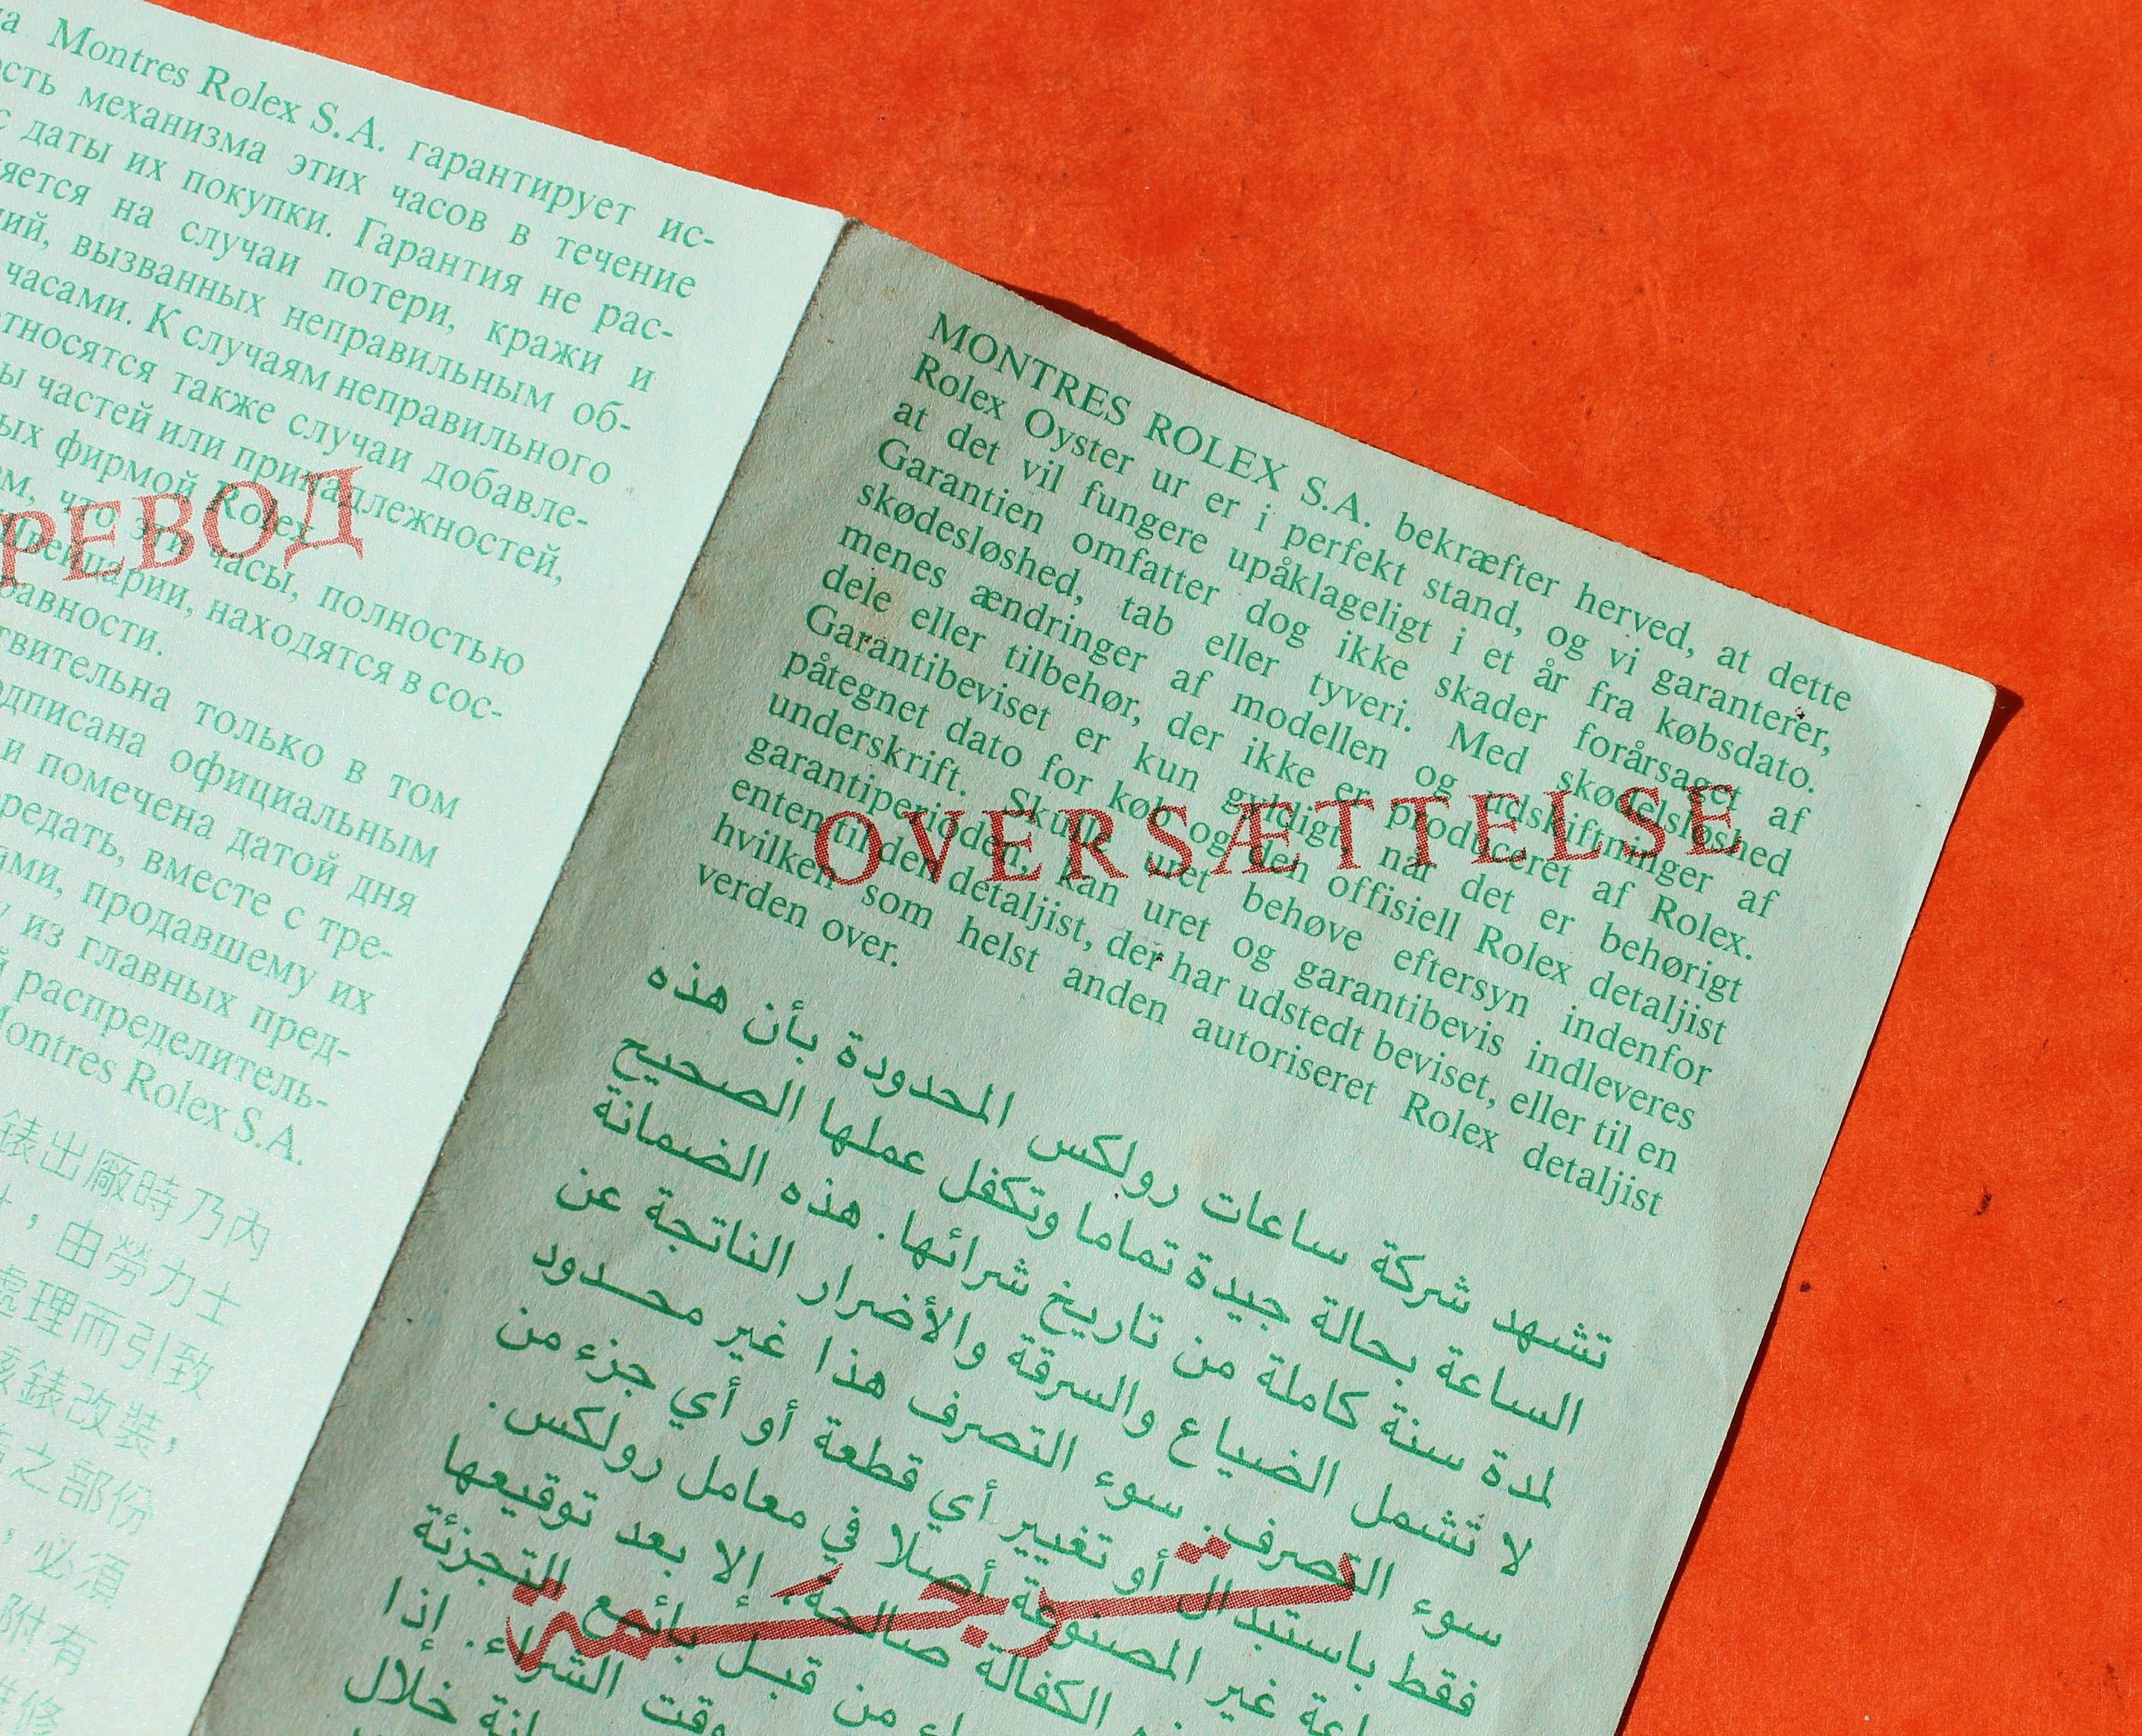 Montres Rolex S.A. гарантирует ис-
механизма этих часов в течение
с даты их покупки. Гарантия не рас-
на случаи потери, кражи и
вызванных неправильным об-
часами. К случаям неправильного
относятся также случаи добавле-
частей или принадлежностей,
фирмой Rolex
что эти часы, полностью
находятся в сос-
только в том
официальным
и помечена датой дня
вместе с тре-
продавшему их
из главных пред-
распределитель-
Montres Rolex S.A.
錶出廠時乃內
，由勞力士
處理而引致
該錶改裝，
之部份
，必須
附有
MONTRES ROLEX S.A. bekræfter herved, at dette
Rolex Oyster ur er i perfekt stand, og vi garanterer,
at det vil fungere upåklageligt i et år fra købsdato.
Garantien omfatter dog ikke skader forårsaget af
skødesløshed, tab eller tyveri. Med skødelsløshed
menes ændringer af modellen og udskiftninger af
dele eller tilbehør, der ikke er produceret af Rolex.
Garantibeviset er kun gyldigt, når det er behørigt
påtegnet dato for køb og den offisiell Rolex detaljist
underskrift. Skulle uret behøve eftersyn indenfor
garantiperioden, kan uret og garantibevis indleveres
enten til den detaljist, der har udstedt beviset, eller til en
hvilken som helst anden autoriseret Rolex detaljist
verden over.
OVERSÆTTELSE
تشهد شركة ساعات رولكس المحدودة بأن هذه
الساعة بحالة جيدة تماما وتكفل عملها الصحيح
لمدة سنة كاملة من تاريخ شرائها. هذه الضمانة
لا تشمل الضياع والسرقة والأضرار الناتجة عن
سوء التصرف. سوء التصرف هذا غير محدود
فقط باستبدال أو تغيير أي قطعة أو أي جزء من
غير المصنوعة أصلا في معامل رولكس.
الكفالة صالحة، إلا بعد توقيعها
من قبل بائع التجزئة
وقت الشراء. إذا
خلال